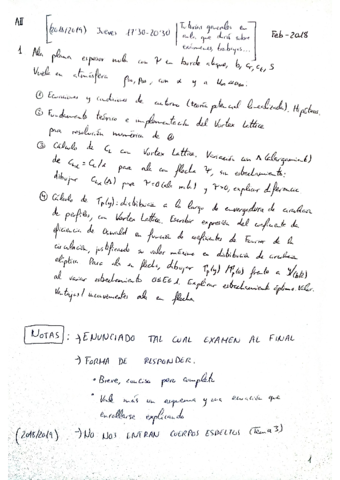 AII
(2018/2019) Jueves 17:30-20:30
Tutorías generales en
aula que dirá sobre
exámenes, trabajos...
Feb-2018
1 Ala plana espesor nulo con Ψ en borde ataque, b, Cr, Ct, S
Vuela en atmósfera p∞, ρ∞, con α y a U∞
① Ecuaciones y condiciones de contorno (teoría potencial linealizada). Hipótesis.
② Fundamento teórico e implementación del Vortex Lattice
para resolución numérica de ①
③ Cálculo de CL con Vortex Lattice. Variación con Λ (alargamiento)
de CLα = CL/α para ala con flecha Ψ, sin estrechamiento:
dibujar CLα(Λ) para Ψ=0 (ala recta) y Ψ>0, explicar diferencia
④ Cálculo de Γp(y): distribución a lo largo de envergadura de circulación
de perfiles, con Vortex Lattice. Escribir expresión del coeficiente de
eficiencia de Oswald en función de coeficientes de Fourier de la
circulación, justificando su valor máximo en distribución de circulación
elíptica. Para ala sin flecha, dibujar
al variar estrechamiento 0≤σ≤1. Explicar estrechamiento óptimo.
Ventajas / inconvenientes ala en flecha
NOTAS: → ENUNCIADO TAL CUAL EXAMEN AL FINAL
→ FORMA DE RESPONDER.
• Breve, concisa pero completa
• Vale más un esquema y una ecuación que
enrollarse explicando
(2018/2019) → NO NOS ENTRAN CUERPOS ESBELTOS (Tema 3)
1